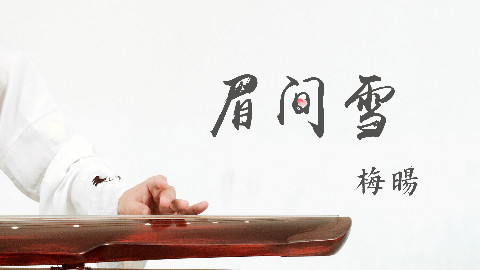 眉间雪
梅暘